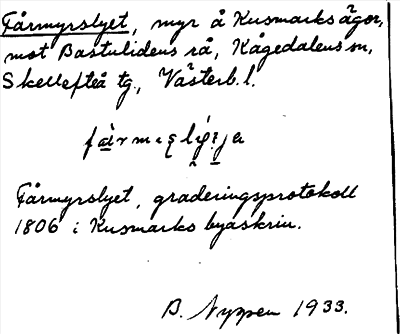 Fårmyrslyet, myr å Kusmarks ägor,
mot Bastulidens rå, Kågedalens sn,
Skellefteå tg., Västerb. l.
Fårmyrslyet, graderingsprotokoll
1806 i Kusmarks byaskrin.
B. Nyppen 1933.